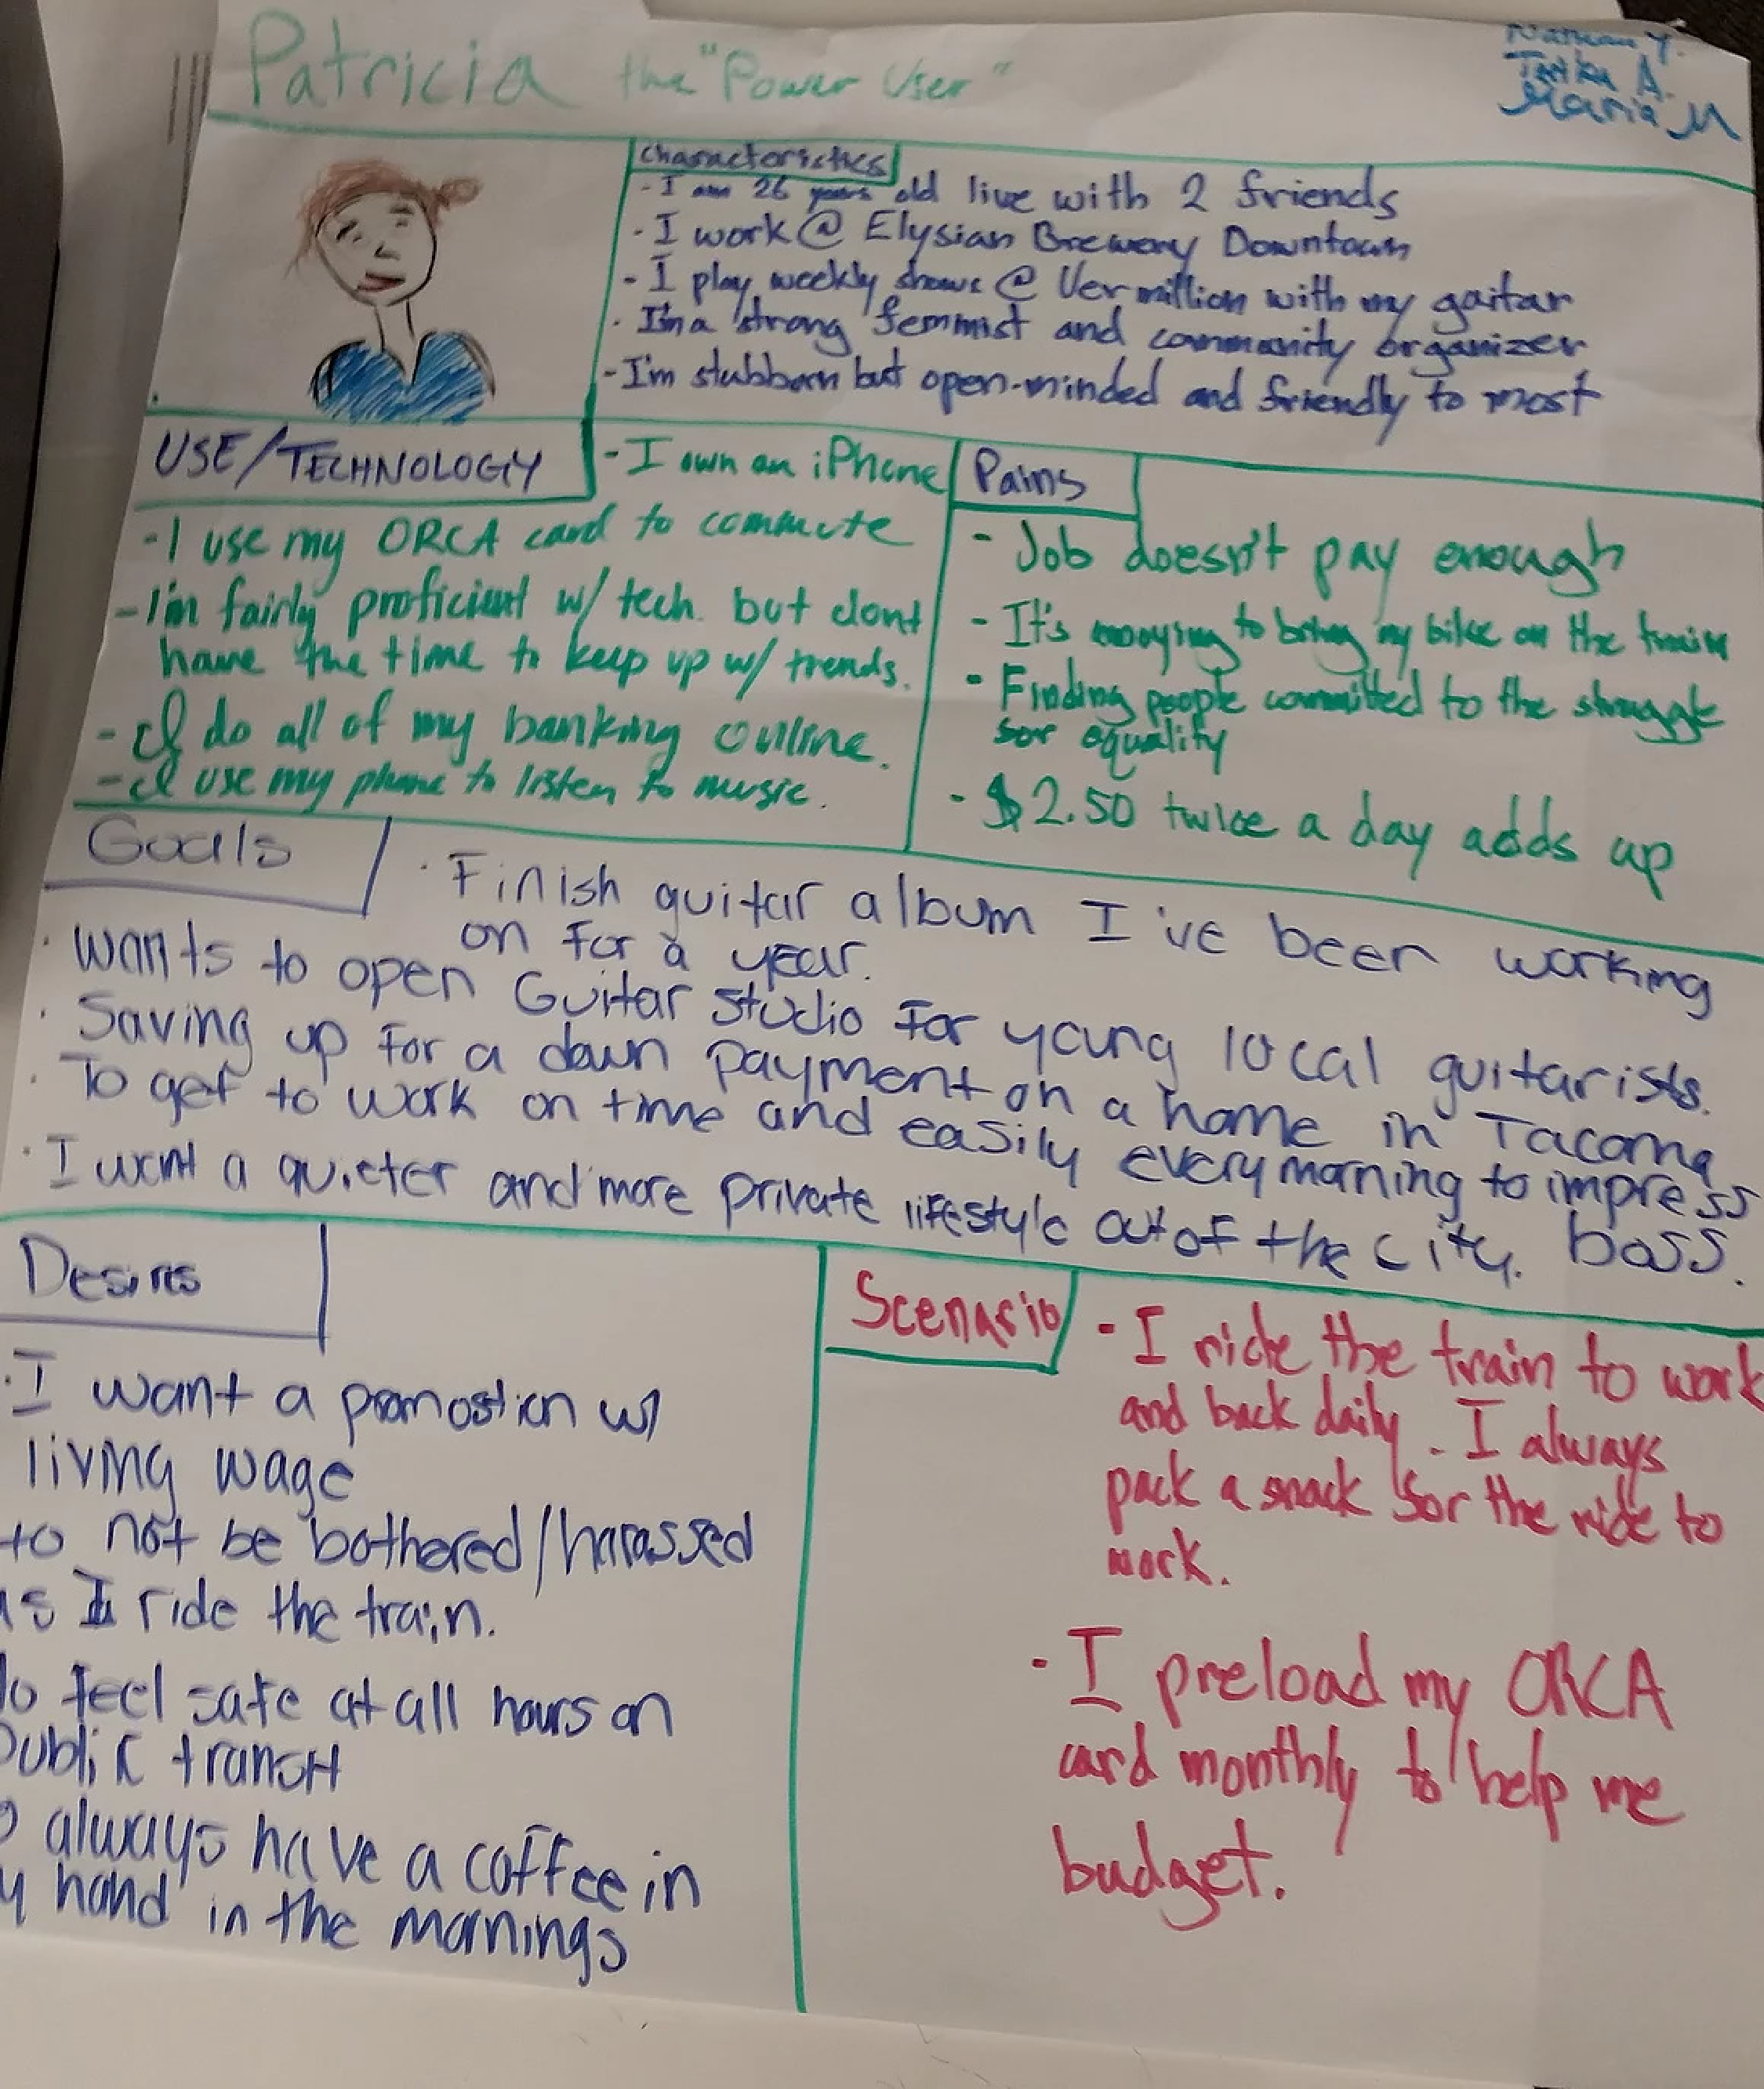 Patricia the "Power User"
Nathan Y.
A.
Maria M
Characteristics
- I am 26 years old live with 2 friends
- I work @ Elysian Brewery Downtown
- I play weekly shows @ Vermillion with my guitar
- I'm a strong feminist and community organizer
- I'm stubborn but open-minded and friendly to most
USE/TECHNOLOGY
- I own an iPhone
- I use my ORCA card to commute
- I'm fairly proficient w/ tech. but dont
have the time to keep up w/ trends.
- I do all of my banking online.
- I use my phone to listen to music.
Pains
- Job doesn't pay enough
- It's annoying to bring my bike on the train
- Finding people committed to the struggle
for equality
- $2.50 twice a day adds up
Goals
· Finish guitar album I've been working
on for a year.
· Wants to open Guitar studio for young local guitarists.
· Saving up for a down payment on a home in Tacoma
· To get to work on time and easily every morning to impress
boss.
· I want a quieter and more private lifestyle out of the city.
Desires
· I want a promostion w/
living wage
to not be bothered/harassed
as I ride the train.
To feel safe at all hours on
public transit
always have a coffee in
hand in the mornings
Scenario
- I ride the train to work
and back daily. I always
pack a snack for the ride to
work.
- I preload my ORCA
card monthly to help me
budget.